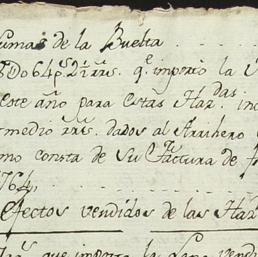 umas de la Buelta
Do 64p.s 2 rrs. q.e importo la
este año para estas Haz.das inc
medio rrs. dados al Arriero
mo consta de su Factura de
764,
Efectos vendidos de las Haz
que importo la Lana vendi